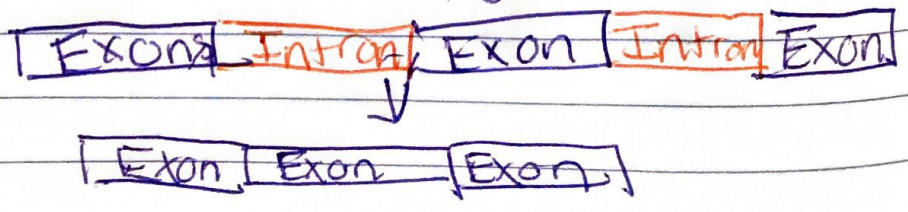 Exons Intron Exon Intron Exon
Exon Exon Exon